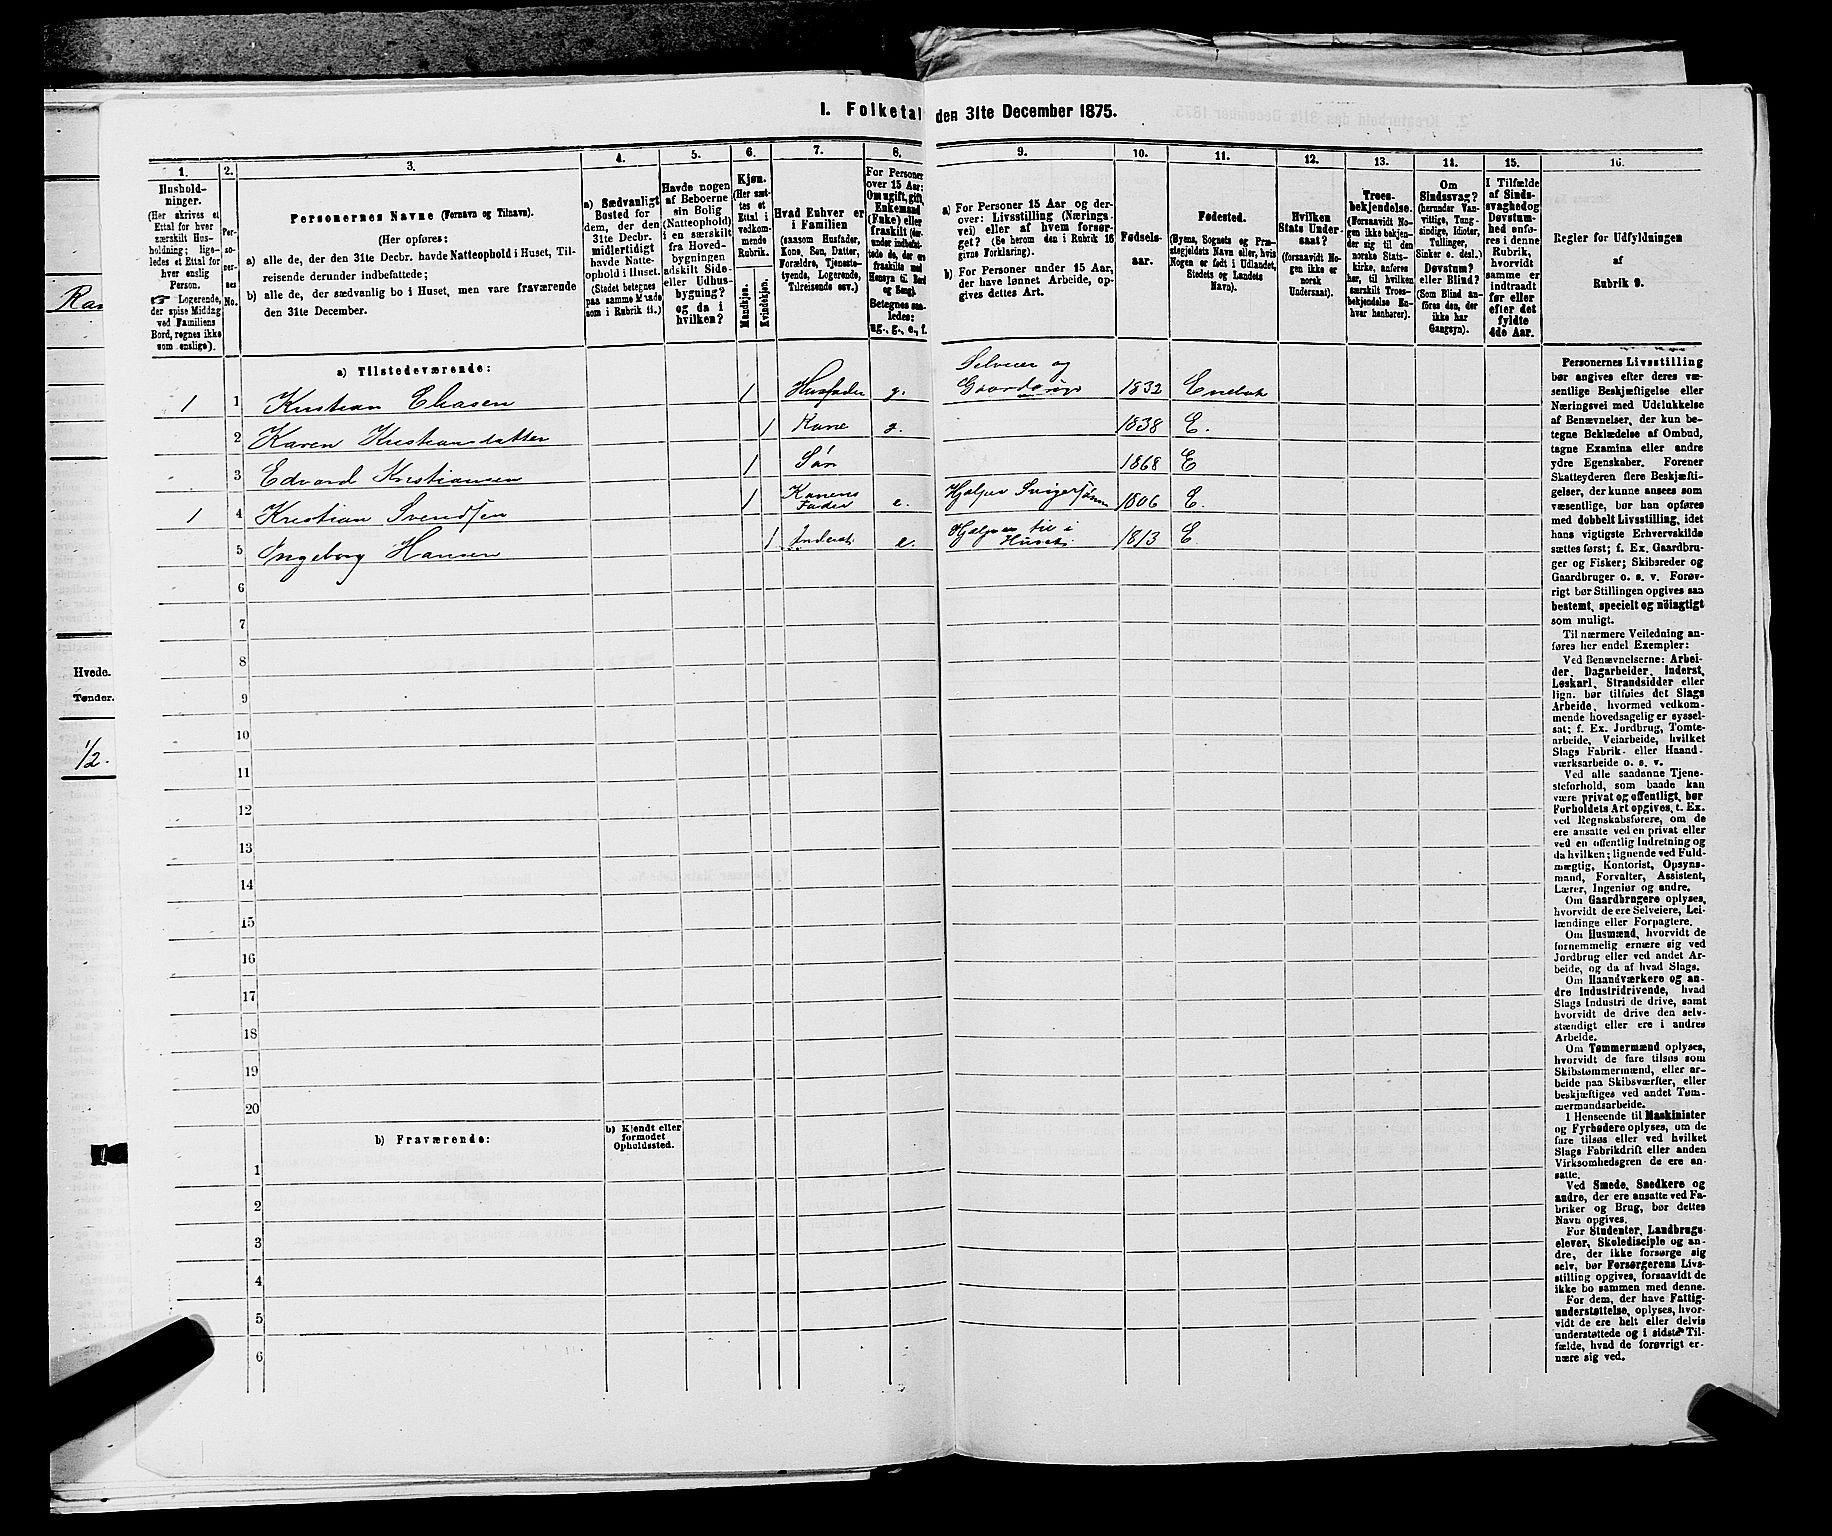 I. Folketal den 31te December 1875.
1.
Hushold-
ninger.
(Her skrives et
Ettal for hver
særskilt Hus-
holdning; lige-
ledes et Ettal for
hver enslig
Person.
☞ Logerende,
der spise Middag
ved Familiens
Bord, regnes ikke
som enslige).
2.
Per-
so-
ner-
nes
No.
3.
Personernes Navne (Fornavn og Tilnavn).
(Her opføres:
a) alle de, der den 31te Decbr. havde Natteophold i Huset, Til-
reisende derunder indbefattede;
b) alle de, der sædvanlig bo i Huset, men vare fraværende
den 31te December.
4.
a) Sædvanligt
Bosted for
dem, der den
31te Decbr.
midlertidigt
havde Natte-
ophold i Huset.
(Stedet betegnes
paa samme Maade
som i Rubrik 11.)
5.
Havde nogen
af Beboerne
sin Bolig
(Natteophold)
i en særskilt
fra Hoved-
bygningen
adskilt Side-
eller Udhus-
bygning?
og da i
hvilken?
6.
Kjøn.
(Her sæt-
tes et
Ettal i
vedkom-
mende
Rubrik.
Mandkjøn.
Kvindekjøn.
7.
Hvad Enhver er
i Familien
(saasom Husfader,
Kone, Søn, Datter,
Forældre, Tjeneste-
tyende, Logerende,
Tilreisende osv.)
8.
For Personer
over 15 Aar:
Om ugift, gift,
Enkemand
(Enke) eller
fraskilt (der-
under indbefat-
tede de, der ere
fraskilte med
Hensyn til Bord
og Seng).
Betegnes saa-
ledes:
ug., g., e., f.
9.
a) For Personer 15 Aar og der-
over: Livsstilling (Nærings-
vei) eller af hvem forsør-
get? (Se herom den i Rubrik 16
givne Forklaring).
b) For Personer under 15 Aar,
der have lønnet Arbeide, op-
gives dettes Art.
10.
Fødsels-
aar.
11.
Fødested.
(Byens, Sognets og Præ-
stegjeldets Navn eller, hvis
Nogen er født i Udlandet,
Stedets og Landets
Navn).
12.
Hvilken
Stats Under-
saat?
(forsaavidt No-
gen ikke er
norsk
Undersaat).
13.
Troes-
bekjendelse.
(Forsaavidt No-
gen ikke bekjen-
der sig til den
norske Stats-
kirke, anføres
her, til hvilken
særskilt Troes-
bekjendelse En-
hver henhører).
14.
Om
Sindssvag?
(herunder Van-
vittige, Tung-
sindige, Idioter,
Tullinger,
Sinker o. desl.)
Døvstum?
eller Blind?
(Som Blind an-
føres den, der
ikke har
Gangsyn).
15.
I Tilfælde
af Sinds-
svaghed og
Døvstum-
hed enfø-
res i denne
Rubrik,
hvorvidt
samme er
indtraadt
før eller
efter det
fyldte
4de Aar.
16.
Regler for Udfyldningen
af
Rubrik 9.
a) Tilstedeværende:
1 1 Kristian Eliasen 1 Husfader g. Selveier og Gaardbruger 1832 Enebak
2 Karen Kristiansdatter 1 Kone g. 1838 E.
3 Edvard Kristiansen 1 Søn 1868 E
1 4 Kristian Svendsen 1 Konens Fader e. Hjælper Svigersønnen 1806 E.
5 Ingeborg Hansen 1 Inderst e. Hjælper til i Huset 1813 E
6
7
8
9
10
11
12
13
14
15
16
17
18
19
20
b) Fraværende:
b) Kjendt eller
formodet
Opholdssted.
1
2
3
4
5
6
Personernes Livsstilling
bør angives efter deres væ-
sentlige Beskjæftigelse eller
Næringsvei med Udelukkelse
af Benævnelser, der kun be-
tegne Beklædelse af Ombud,
tagne Examina eller andre
ydre Egenskaber. Forener
Skatteyderen flere Beskjæfti-
gelser, der kunne ansees som
væsentlige, bør han opføres
med dobbelt Livsstilling, idet
hans vigtigste Erhvervskilde
sættes først; f. Ex. Gaardbru-
ger og Fisker; Skibsreder og
Gaardbruger o. s. v. Forøv-
rigt bør Stillingen opgives saa
bestemt, specielt og nöiagtigt
som muligt.
Til nærmere Veiledning an-
føres her endel Exempler:
Ved Benævnelserne: Arbei-
der, Dagarbeider, Inderst,
Løskarl, Strandsidder eller
lign. bør tilføies det Slags
Arbeide, hvormed vedkom-
mende hovedsagelig er syssel-
sat; f. Ex. Jordbrug, Tomte-
arbeide, Veiarbeide, hvilket
Slags Fabrik- eller Haand-
værksarbeide o. s. v.
Ved alle saadanne Tjene-
steforhold, som baade kan
være privat og offentligt, bør
Forholdets Art opgives, t. Ex.
ved Regnskabsførere, om de
ere ansatte ved en privat eller
ved en offentlig Indretning og
da hvilken; lignende ved Fuld-
mægtig, Kontorist, Opsyns-
mand, Forvalter, Assistent,
Lærer, Ingeniør og andre.
Om Gaardbrugere oplyses,
hvorvidt de ere Selveiere, Lei-
lændinge eller Forpagtere.
Om Husmænd, hvorvidt de
fornemmelig ernære sig ved
Jordbrug eller ved andet Ar-
beide, og da af hvad Slags.
Om Haandværkere og an-
dre Industridrivende, hvad
Slags Industri de drive, samt
hvorvidt de drive den selv-
stændigt eller ere i andres
Arbeide.
Om Tømmermænd oplyses,
hvorvidt de fare tilsøs som
Skibstømmermænd, eller ar-
beide paa Skibsværfter, eller
beskjæftiges ved andet Tøm-
mermandsarbeide.
I Henseende til Maskinister
og Fyrbødere oplyses, om de
fare tilsøs eller ved hvilket
Slags Fabrikdrift eller anden
Virksomhedsgren de ere an-
satte.
Ved Smede, Snedkere og
andre, der ere ansatte ved Fa-
briker og Brug, bør dettes
Navn opgives.
For Studenter, Landbrugs-
elever, Skoledisciple og an-
dre, der ikke forsørge sig
selv, bør Forsørgerens Livs-
stilling opgives, forsaavidt de
ikke bo sammen med denne.
For dem, der have Fattig-
understøttelse, oplyses, hvor-
vidt de ere helt eller delvis
understøttede og i sidste Til-
fælde, hvad de forøvrigt er-
nære sig ved.
Ran
Hvede.
Tønder.
1/2.